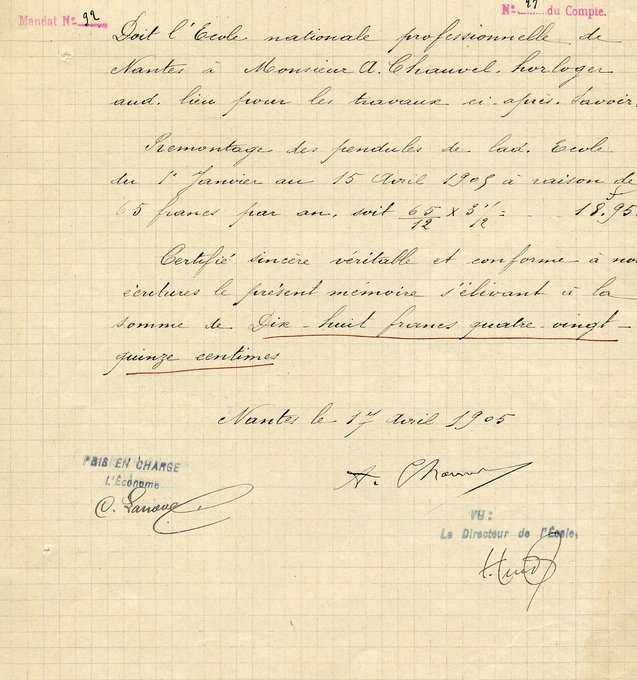 Mandat N° 92
N° 27 du Compte.
Doit l'Ecole nationale professionnelle de
Nantes à Monsieur A. Chauvel. horloger
aud. lieu pour les travaux ci-après. Savoir.
Remontage des pendules de lad. Ecole
du 1er Janvier au 15 Avril 1905 à raison de
65 francs par an. soit 65/12 x 3 1/2 = 18f,95
Certifié sincère véritable et conforme à nos
écritures le présent mémoire s'élevant à la
somme de Dix-huit francs quatre-vingt-
quinze centimes
Nantes le 17 Avril 1905
PRIS EN CHARGE
L'Économe
A. Chauvel
VU:
Le Directeur de l'École,